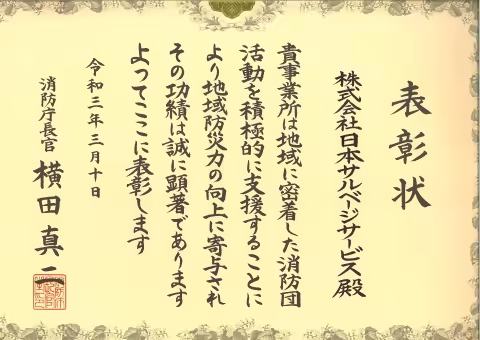 表彰状
株式会社日本サルベージサービス殿
貴事業所は地域に密着した消防団
活動を積極的に支援することに
より地域防災力の向上に寄与され
その功績は誠に顕著であります
よってここに表彰します
令和三年三月十日
消防庁長官 横田真二